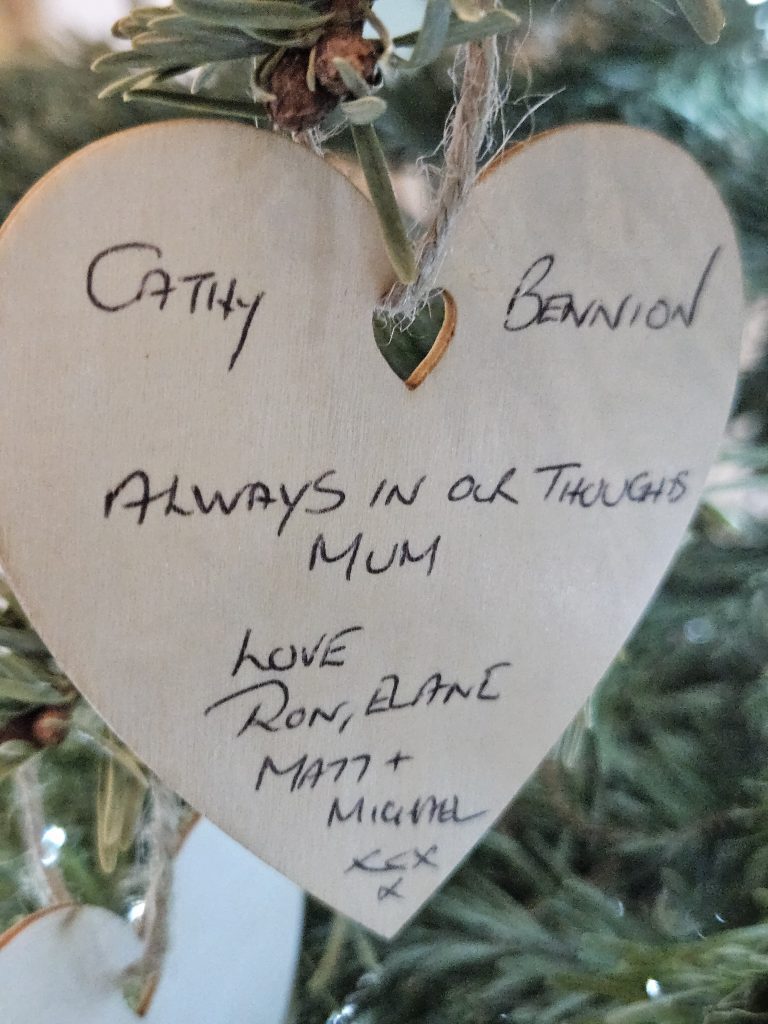 CATHY BENNION
ALWAYS IN OUR THOUGHTS
MUM
LOVE
RON, ELANE
MATT +
MICHAEL
xxx
x